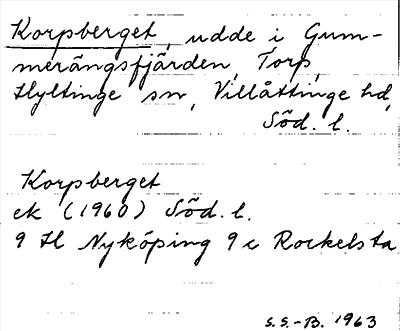 Korpberget, udde i Gum-
merängsfjärden, Torp,
Hyltinge sn, Villåttinge hd,
Söd. l.
Korpberget
ek (1960) Söd. l.
9 H Nyköping 9 c Rockelsta
S.S.-B. 1963